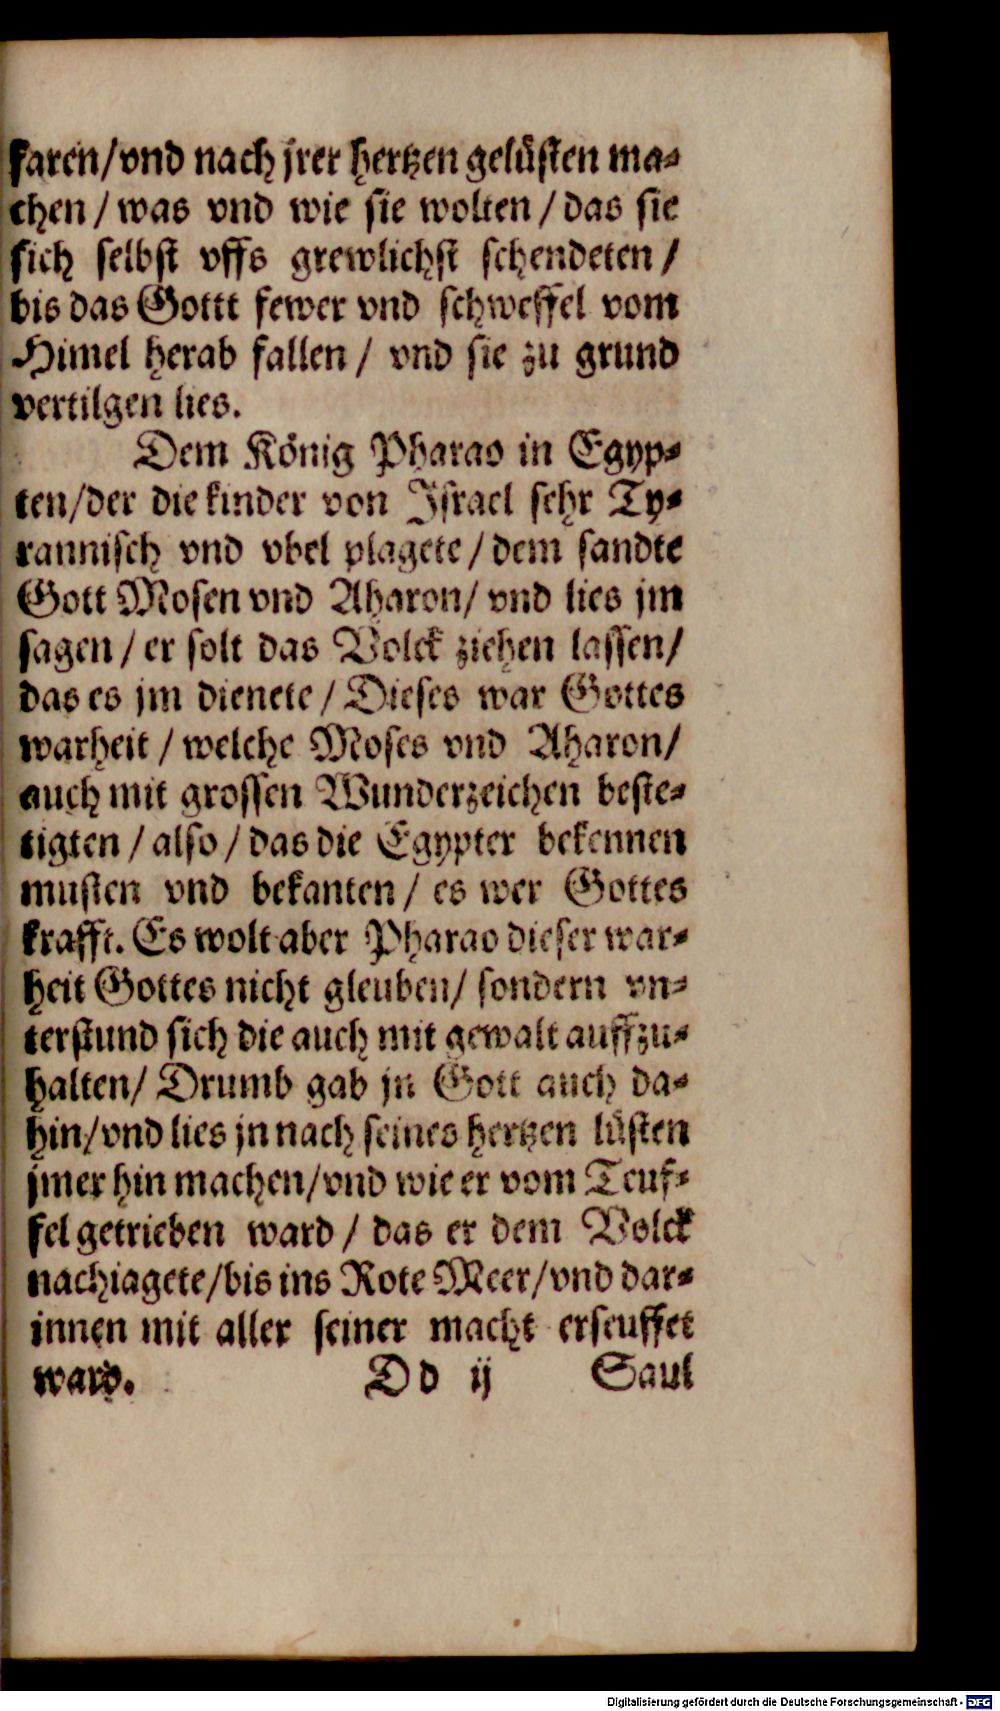 faren/vnd nach jrer hertzen gelüsten ma⸗
chen / was vnd wie sie wolten / das sie
sich selbst vffs grewlichst schendeten /
bis das Gottt fewer vnd schweffel vom
Himel herab fallen / vnd sie zu grund
vertilgen lies.
Dem König Pharao in Egyp⸗
ten/der die kinder von Israel sehr Ty⸗
rannisch vnd vbel plagete / dem sandte
Gott Mosen vnd Aharon/ vnd lies jm
sagen / er solt das Volck ziehen lassen/
das es jm dienete / Dieses war Gottes
warheit / welche Moses vnd Aharon/
auch mit grossen Wunderzeichen beste⸗
tigten / also / das die Egypter bekennen
musten vnd bekanten / es wer Gottes
krafft. Es wolt aber Pharao dieser war⸗
heit Gottes nicht gleuben/ sondern vn⸗
terstund sich die auch mit gewalt auffzu⸗
halten/ Drumb gab jn Gott auch da⸗
hin/vnd lies jn nach seines hertzen lüsten
jmer hin machen/vnd wie er vom Teuf⸗
fel getrieben ward / das er dem Volck
nachiagete/bis ins Rote Meer/vnd dar⸗
innen mit aller seiner macht erseuffet
ward. Dd ij Saul
Digitalisierung gefördert durch die Deutsche Forschungsgemeinschaft - DFG